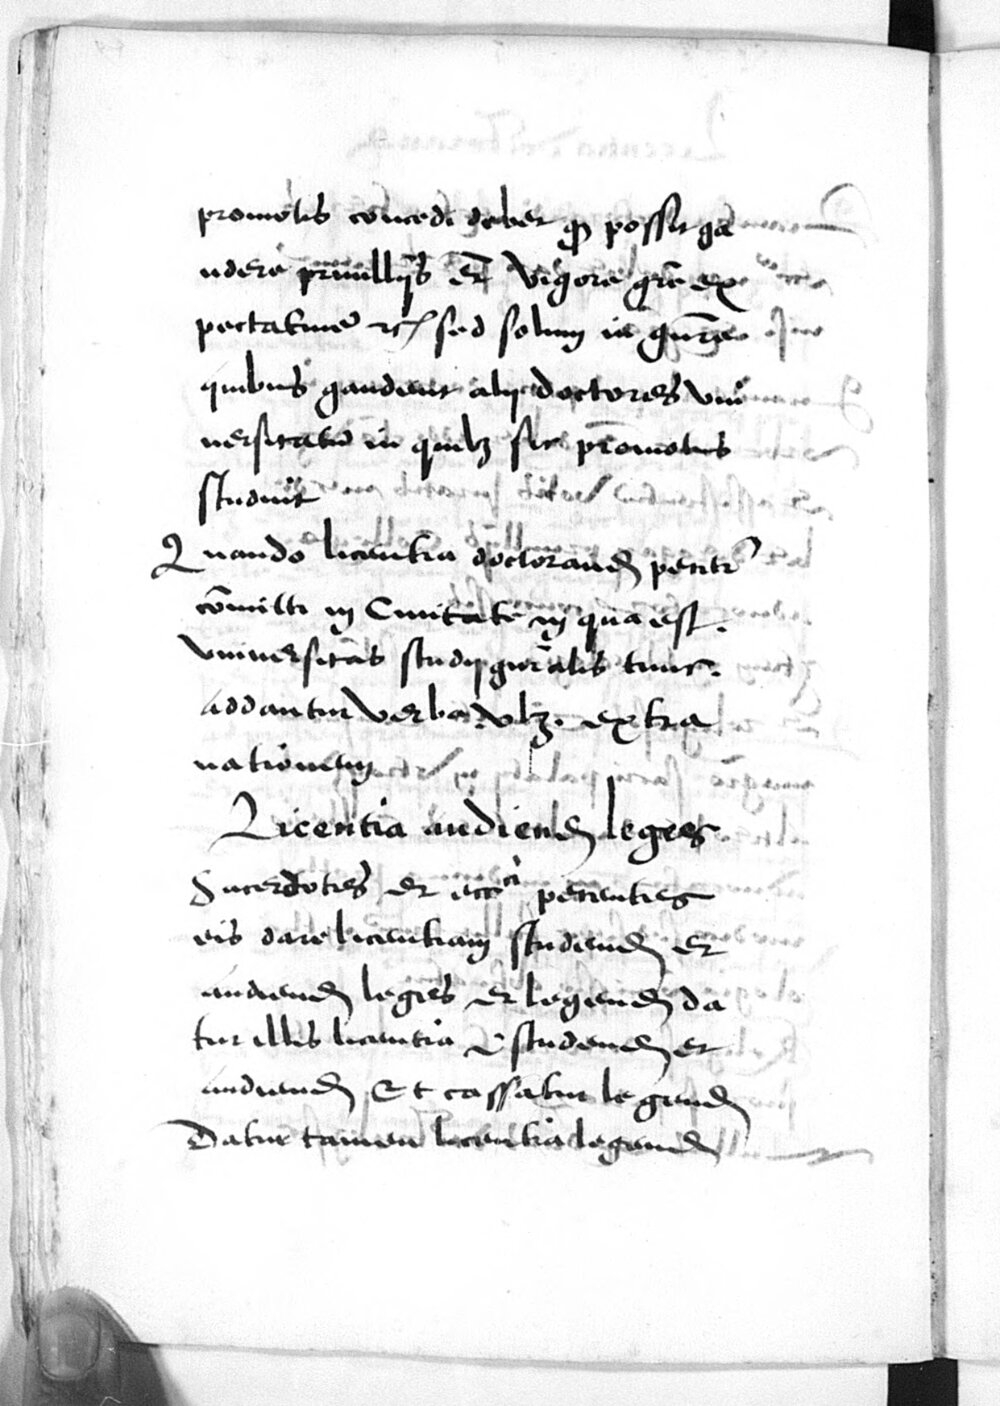 promotis concedi debet qd possit ga
udere priuillijs et vigore gre ex
pectatiue etc sed solum in genere
quibus gaudent alij doctores vni
uersitatū in quibz sic promotus
studuit
Quando licentia doctorand petitr
cōmitti in Ciuitate in qua est
vniuersitas studij gnralis tunc
addantur verba vlz. extra
nationem
Licentia audiend leges
Sacerdotes et ecci petentes
eis dare licentiam studend et
audiend leges et legend da
tur illis licentia studend et
audiend Et cassatur legend
Datur tamen licentia legend